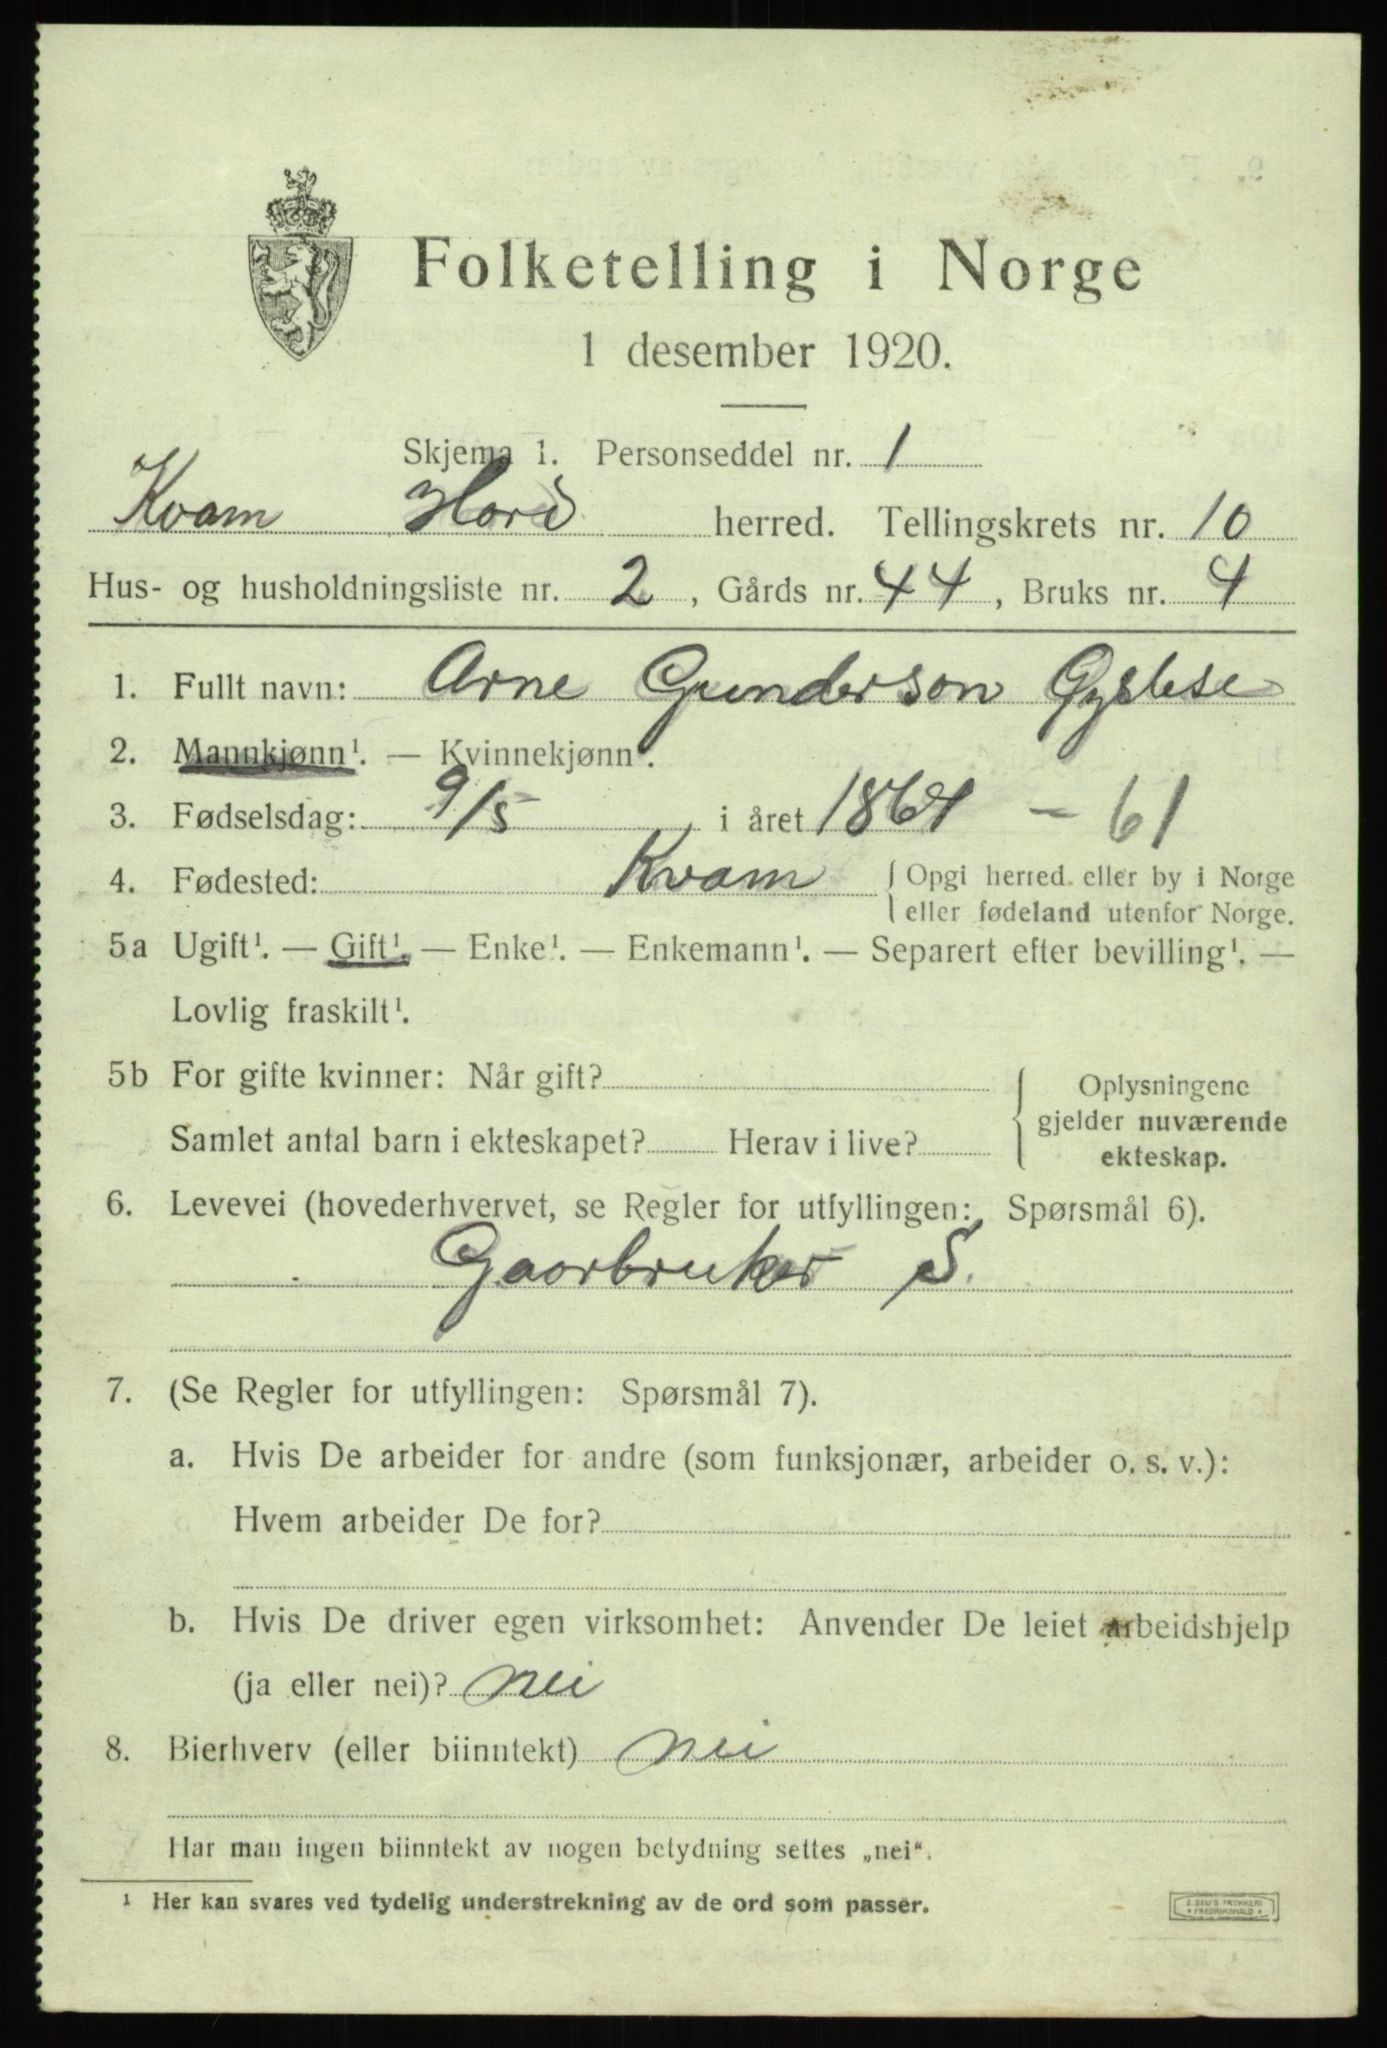 Folketelling i Norge
1 desember 1920.
Skjema 1. Personseddel nr. 1
Kvam Hord herred. Tellingskrets nr. 10
Hus- og husholdningsliste nr. 2, Gårds nr. 44, Bruks nr. 4
1. Fullt navn: Arne Gunderson
2. Mannkjønn¹. — Kvinnekjønn¹.
3. Fødselsdag: 9/5 i året 1861 - 61
4. Fødested: Kvam { Opgi herred eller by i Norge
eller fødeland utenfor Norge.
5a Ugift¹. — Gift¹. — Enke¹. — Enkemann¹. — Separert efter bevilling¹. —
Lovlig fraskilt¹.
5b For gifte kvinner: Når gift? { Oplysningene
Samlet antal barn i ekteskapet? Herav i live? gjelder nuværende
ekteskap.
6. Levevei (hovederhvervet, se Regler for utfyllingen: Spørsmål 6).
Gaorbruker S.
7. (Se Regler for utfyllingen: Spørsmål 7).
a. Hvis De arbeider for andre (som funksjonær, arbeider o. s. v.):
Hvem arbeider De for?
b. Hvis De driver egen virksomhet: Anvender De leiet arbeidshjelp
(ja eller nei)? nei
8. Bierhverv (eller biinntekt) nei
Har man ingen biinntekt av nogen betydning settes „nei“.
¹ Her kan svares ved tydelig understrekning av de ord som passer.